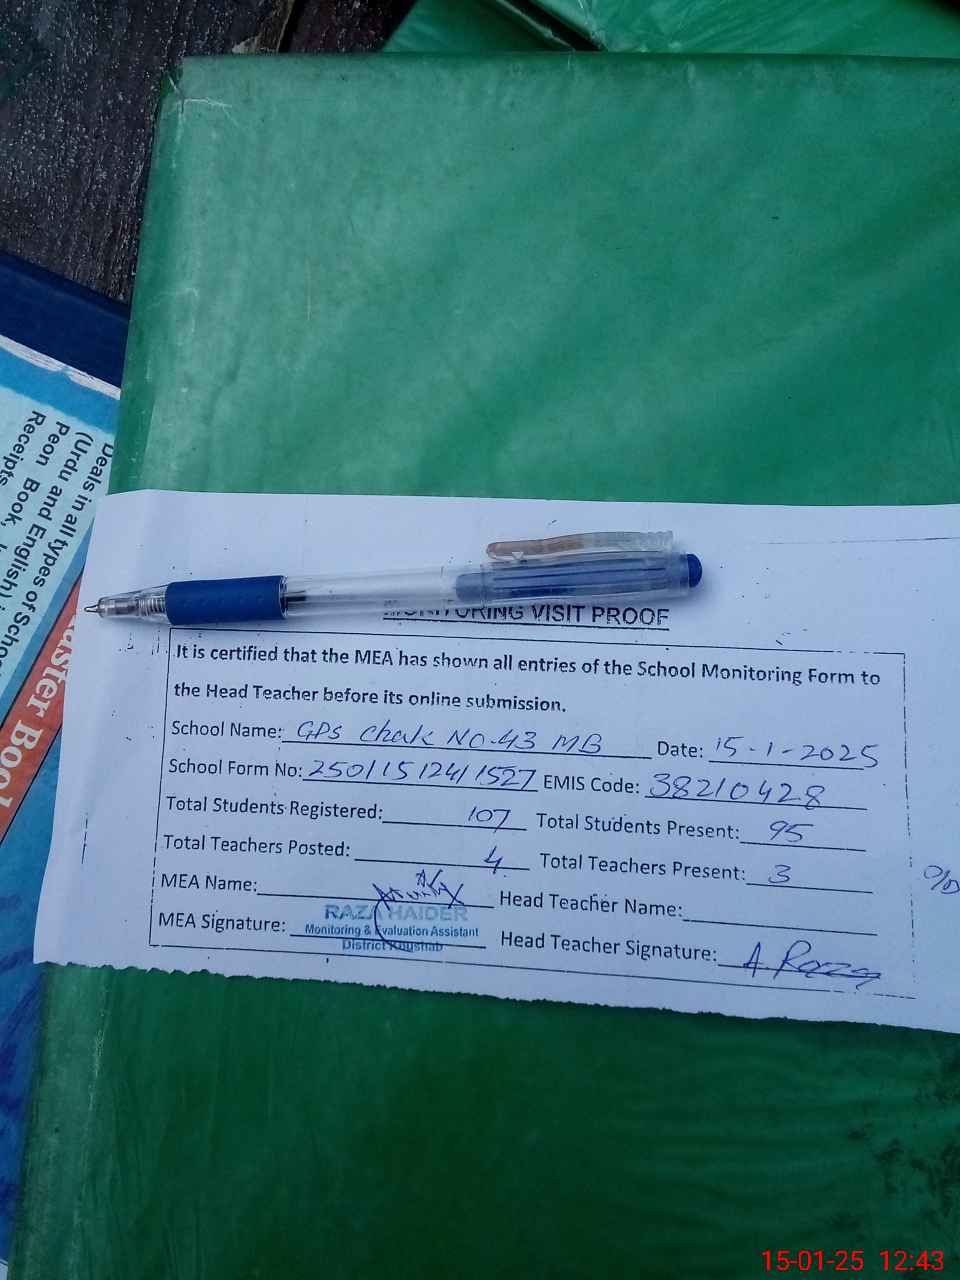 Deals in all types of
(Urdu and English)
Peon Book,
Receipts
MONITORING VISIT PROOF
It is certified that the MEA has shown all entries of the School Monitoring Form to
the Head Teacher before its online submission.
School Name: GPS Chak NO. 43 MB Date: 15-1-2025
School Form No: 25011512411527 EMIS Code: 38210428
Total Students Registered: 107 Total Students Present: 95
Total Teachers Posted: 4 Total Teachers Present: 3
MEA Name: Head Teacher Name:
RAZA HAIDER
Monitoring & Evaluation Assistant
District Khushab
MEA Signature: Head Teacher Signature: A. Razaq
15-01-25 12:43